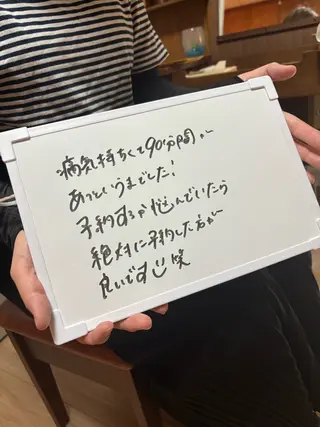 痛気持ちくて90分間が
あっというまでした!
予約するか悩んでいたら
絶対に予約した方が
良いです 笑